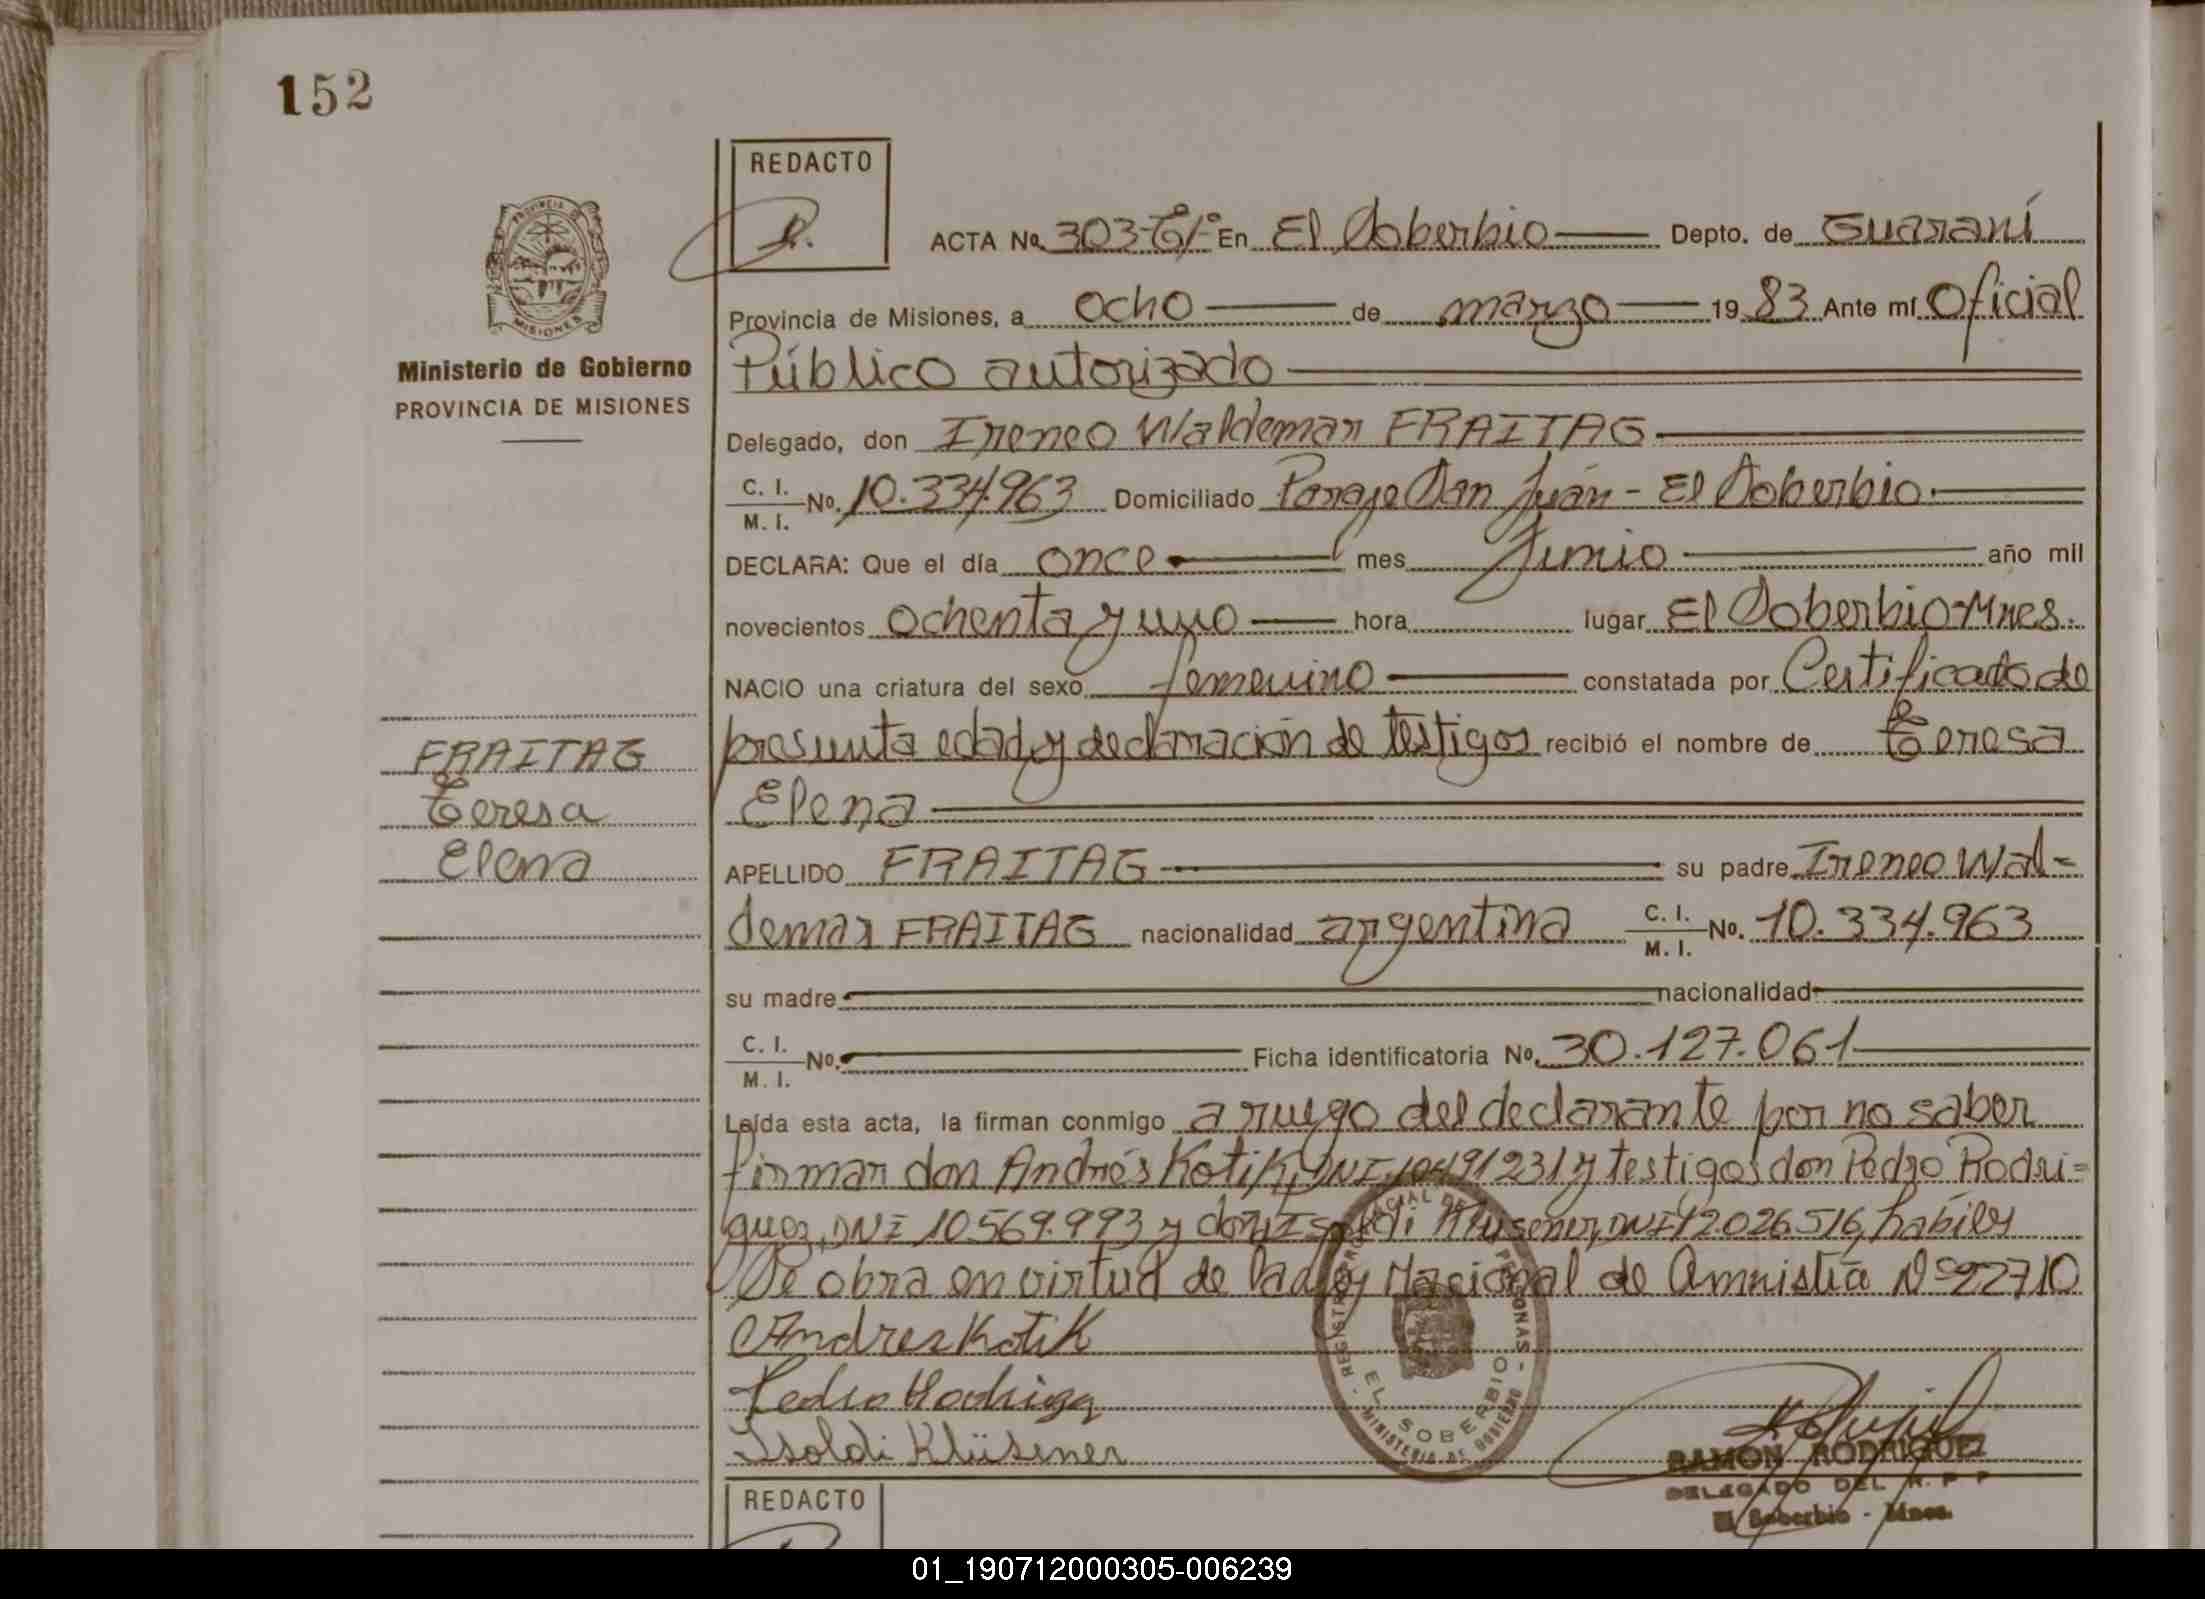 152
REDACTO
ACTA No. 303-Tº1º En El Soberbio Depto. de Guaraní
Provincia de Misiones, a ocho de marzo 19 83 Ante mí Oficial
Público autorizado
Ministerio de Gobierno
PROVINCIA DE MISIONES
Delegado, don Ireneo Waldemar FRAITAG
C. I. / M. I. No. 10.334.963 Domiciliado Paraje San Juán - El Soberbio.
DECLARA: Que el día once mes Junio año mil
novecientos ochenta y uno hora lugar El Soberbio-Mnes.
NACIO una criatura del sexo femenino constatada por Certificado de
presunta edad y declaración de testigos recibió el nombre de Teresa
Elena
FRAITAG
Teresa
Elena
APELLIDO FRAITAG su padre Ireneo Wal=
demar FRAITAG nacionalidad argentina C. I. / M. I. No. 10.334.963
su madre nacionalidad
C. I. / M. I. No. Ficha identificatoria No. 30.127.061
Leída esta acta, la firman conmigo a ruego del declarante por no saber
firmar don Andrés Kotik, DNI 10491231 y testigos don Pedro Rodri=
guez, DNI 10.569.993 y don Isoldi Klusener, DNI 12026516, hábiles
Se obra en virtud de la Ley Nacional de Amnistía Nº 22710
Andres Kotik
Pedro Rodriguez
Isoldi Klüsener
REGISTRO PROVINCIAL DE LAS PERSONAS
EL SOBERBIO
MINISTERIO DE GOBIERNO
RAMON RODRIGUEZ
DELEGADO DEL R. P. P.
El Soberbio - Mnes.
REDACTO
01_190712000305-006239